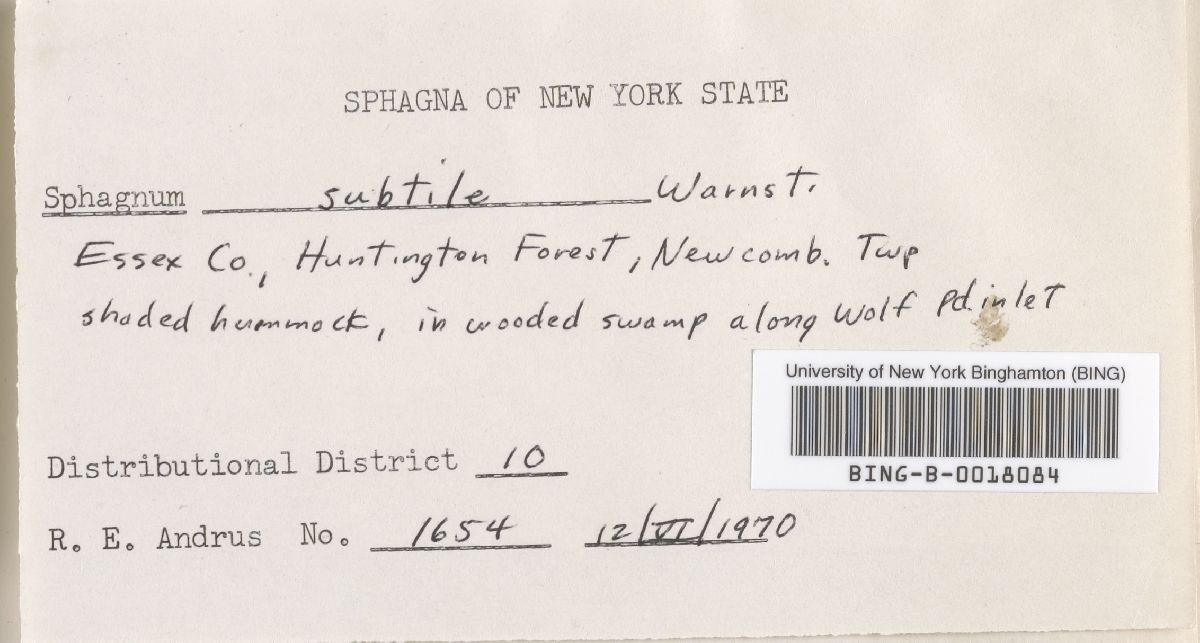 SPHAGNA OF NEW YORK STATE
Sphagnum subtile Warnst.
Essex Co., Huntington Forest, Newcomb. Twp
shaded hummock, in wooded swamp along Wolf Pd. inlet
University of New York Binghamton (BING)
BING-B-0018084
Distributional District 10
R. E. Andrus No. 1654 12/VI/1970